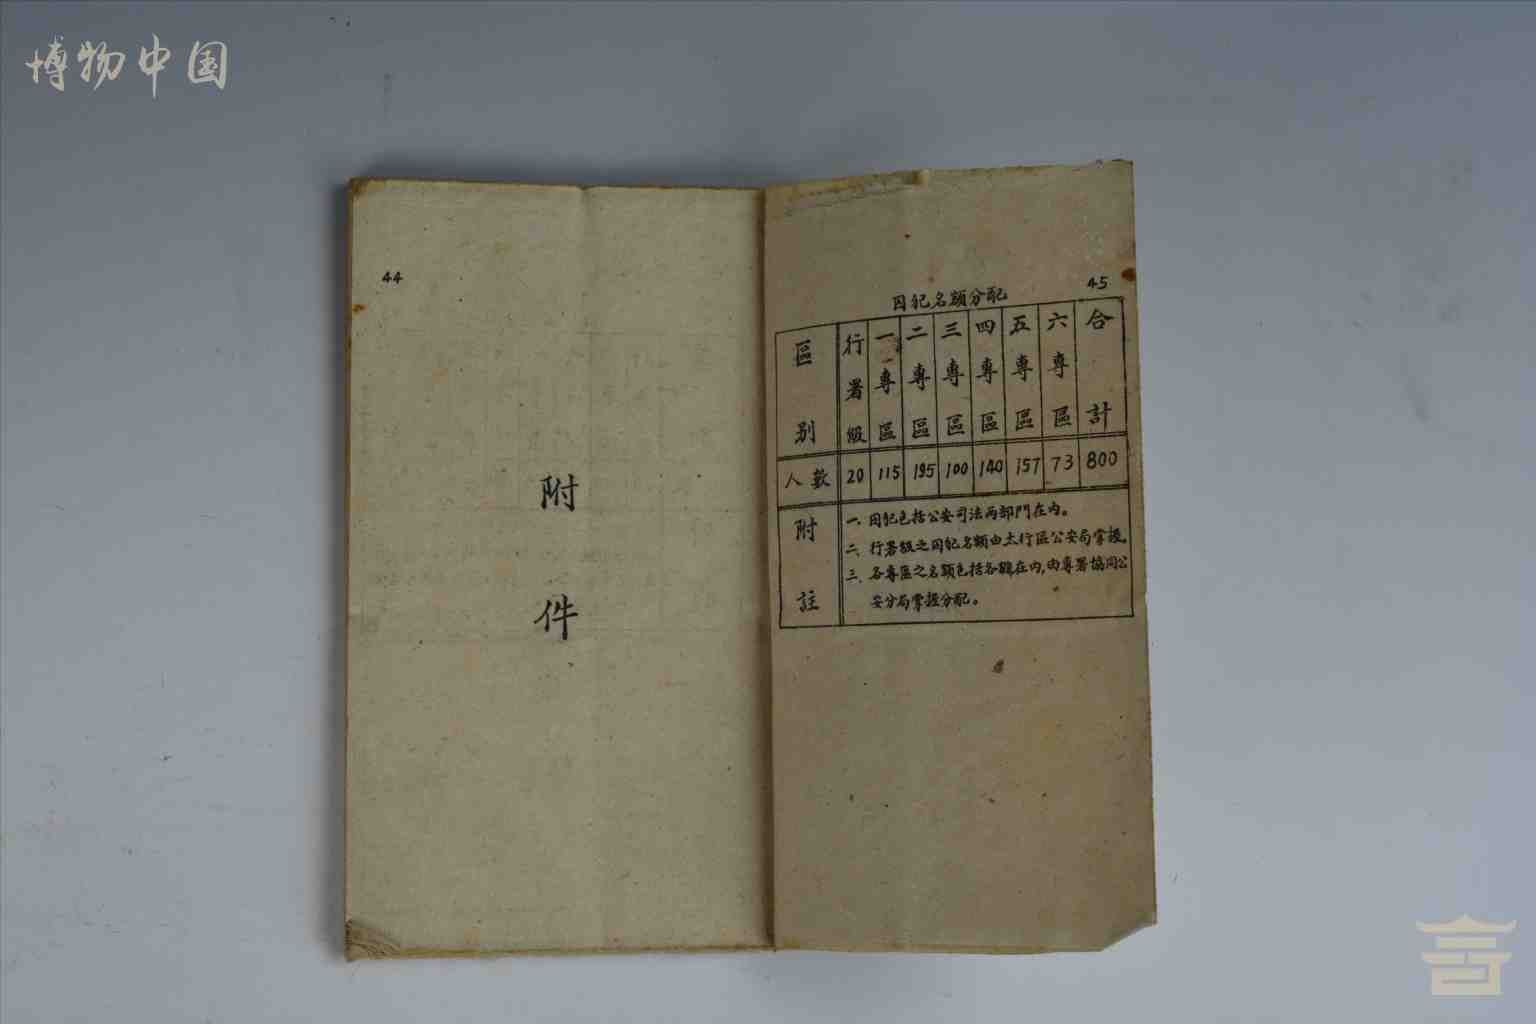 博物中国
44
附件
45
囚犯名額分配
區別 行署級 一專區 二專區 三專區 四專區 五專區 六專區 合計
人數 20 115 195 100 140 157 73 800
附註
一、囚犯包括公安司法两部門在内。
二、行署級之囚犯名額由太行區公安局掌握。
三、各專區之名額包括各縣在内,由專署協同公
安分局掌握分配。